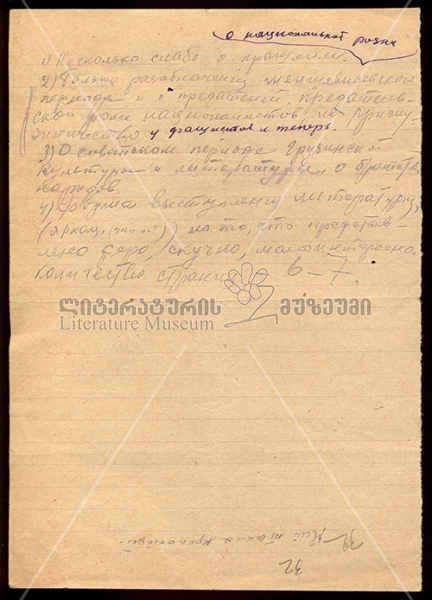 о национальной розни
1) Несколько слабо о прошлом.
2) Больше разоблачений меньшевистского
периода и о предателей, предатель-
ской роли националистов, их прислу-
жничество у фашистов и теперь.
3) О советском периоде грузинской
культуры и литературы, о братстве
народов
4) Форма выступления литературну,
(яркой, ) а то, что представ-
лено серо, скучно, малоинтересно.
Количество страниц 6–7.
ლიტერატურის მუზეუმი
Literature Museum
32
32